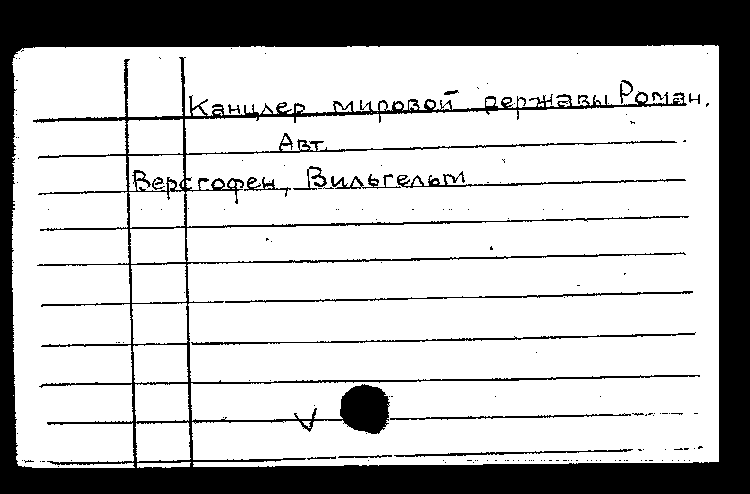 Канцлер мировой державы Роман.
Авт.
Версгофен, Вильгельм
V